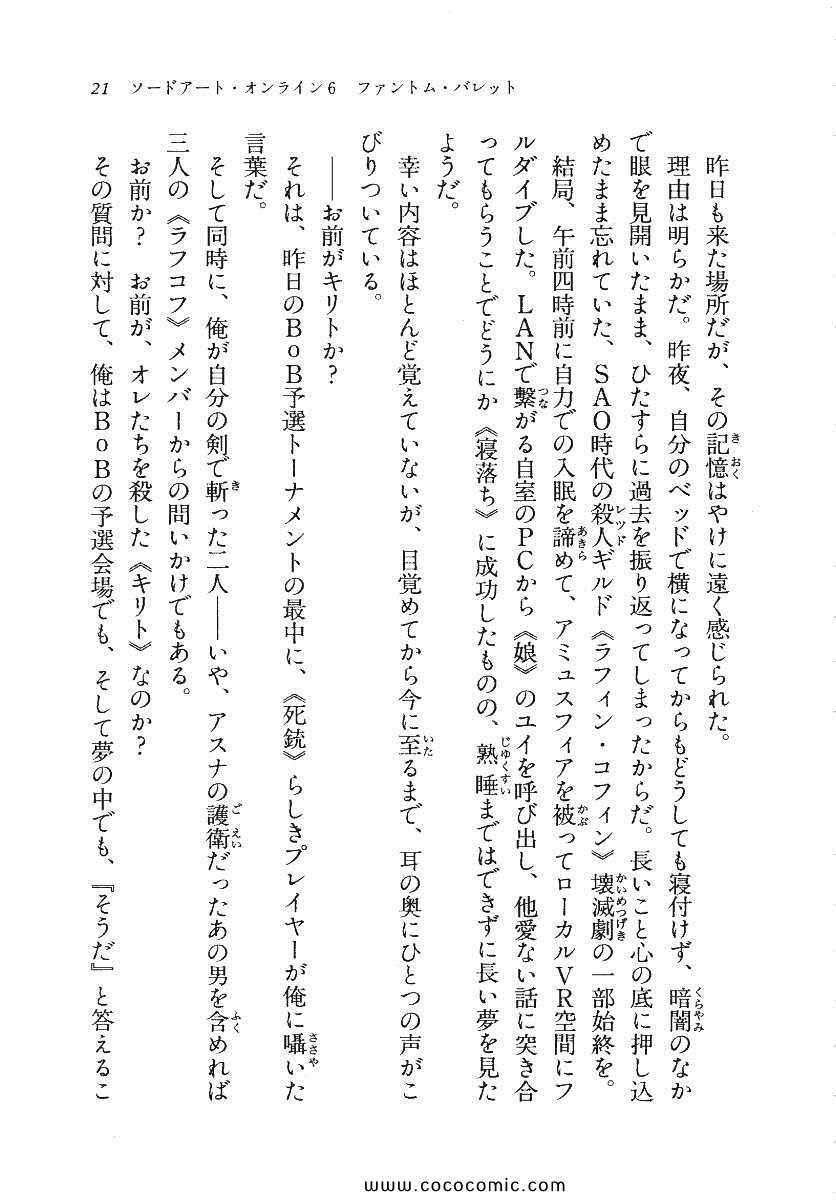 21　ソードアート・オンライン6　ファントム・バレット
昨日も来た場所だが、その記憶はやけに遠く感じられた。
理由は明らかだ。昨夜、自分のベッドで横になってからもどうしても寝付けず、暗闇のなか
で眼を見開いたまま、ひたすらに過去を振り返ってしまったからだ。長いこと心の底に押し込
めたまま忘れていた、SAO時代の殺人ギルド《ラフィン・コフィン》壊滅劇の一部始終を。
結局、午前四時前に自力での入眠を諦めて、アミュスフィアを被ってローカルVR空間にフ
ルダイブした。LANで繋がる自室のPCから《娘》のユイを呼び出し、他愛ない話に突き合
ってもらうことでどうにか《寝落ち》に成功したものの、熟睡まではできずに長い夢を見た
ようだ。
幸い内容はほとんど覚えていないが、目覚めてから今に至るまで、耳の奥にひとつの声がこ
びりついている。
――お前がキリトか？
それは、昨日のBoB予選トーナメントの最中に、《死銃》らしきプレイヤーが俺に囁いた
言葉だ。
そして同時に、俺が自分の剣で斬った二人――いや、アスナの護衛だったあの男を含めれば
三人の《ラフコフ》メンバーからの問いかけでもある。
お前か？　お前が、オレたちを殺した《キリト》なのか？
その質問に対して、俺はBoBの予選会場でも、そして夢の中でも、『そうだ』と答えるこ
www.cococomic.com